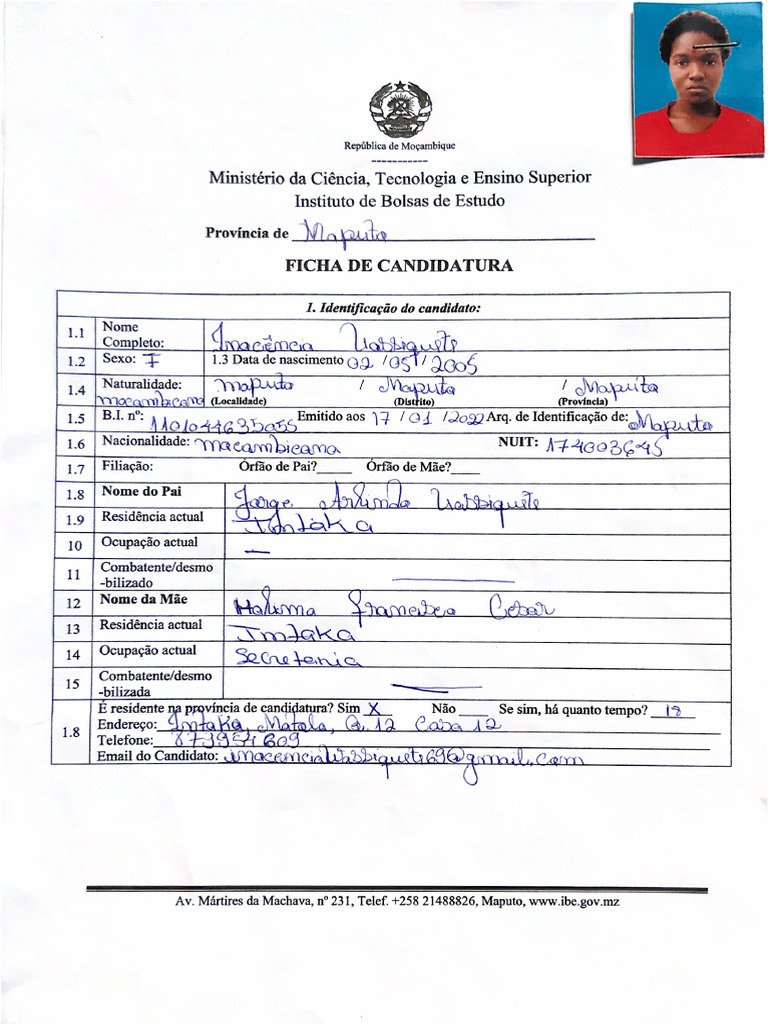 República de Moçambique
-----------
Ministério da Ciência, Tecnologia e Ensino Superior
Instituto de Bolsas de Estudo
Província de Maputo
FICHA DE CANDIDATURA
1. Identificação do candidato:
1.1 Nome Completo: Inaciência Uassiquete
1.2 Sexo: F 1.3 Data de nascimento 02 / 05 / 2005
1.4 Naturalidade: Maputo / Maputo / Maputo
mocambicana (Localidade) (Distrito) (Província)
1.5 B.I. nº: 1101044635055 Emitido aos 17 / 01 / 2022 Arq. de Identificação de: Maputo
1.6 Nacionalidade: mocambicana NUIT: 174003645
1.7 Filiação: Órfão de Pai?_____ Órfão de Mãe?____
1.8 Nome do Pai Jorge Arlindo Uassiquete
1.9 Residência actual Intaka
10 Ocupação actual —
11 Combatente/desmo-bilizado
12 Nome da Mãe Halima Francisco Cesar
13 Residência actual Intaka
14 Ocupação actual Secretaria
15 Combatente/desmo-bilizada
1.8 É residente na província de candidatura? Sim X Não ____ Se sim, há quanto tempo? 18
Endereço: Intaka, Matola, Q.12 Casa 12
Telefone:
Email do Candidato:
Av. Mártires da Machava, nº 231, Telef. +258 21488826, Maputo, www.ibe.gov.mz